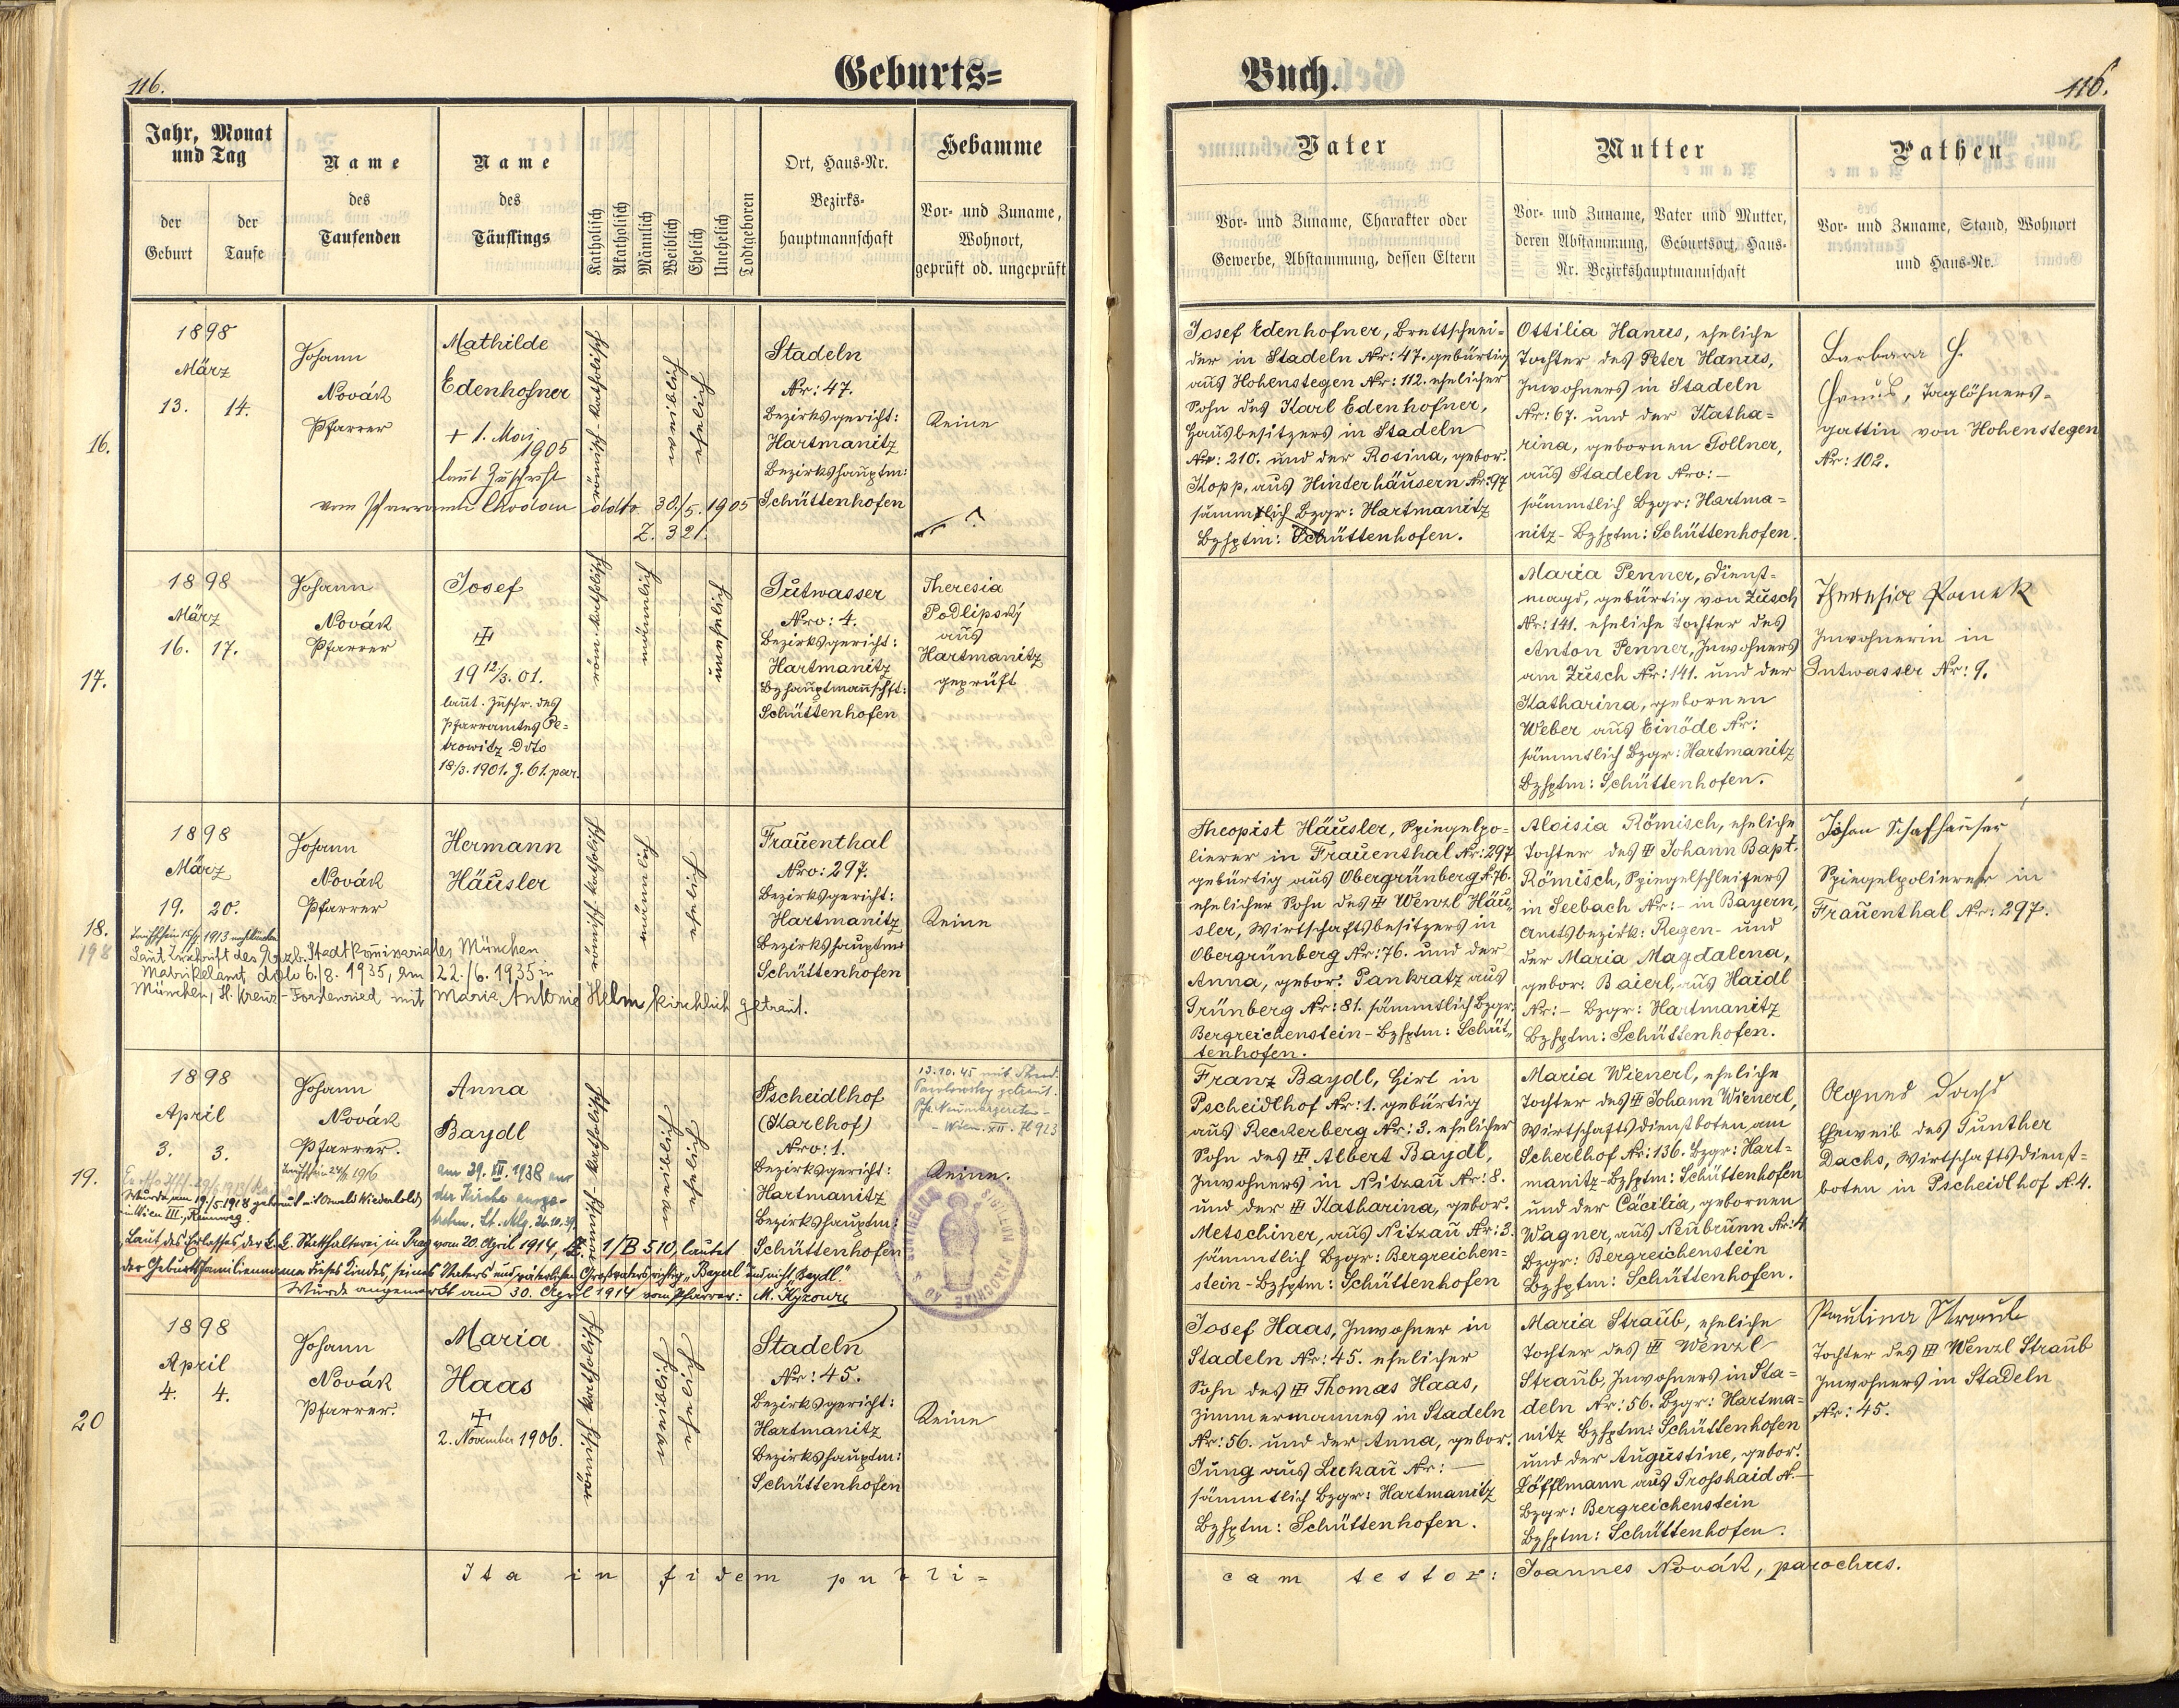 116.
Geburts=
Jahr, Monat
und Tag
der
Geburt
der
Taufe
Name
des
Taufenden
Name
des
Täuflings
Katholisch
Akatholisch
Männlich
Weiblich
Ehelich
Unehelich
Todtgeboren
Ort, Haus-Nr.
Bezirks-
hauptmannschaft
Hebamme
Vor- und Zuname,
Wohnort,
geprüft od. ungeprüft
16.
1898
März
13. 14.
Johann
Novák
Pfarrer
Mathilde
Edenhofner
+ 1. Mai
1905
laut Zuschrift
vom Pfarramte Chodau ddto 30./5. 1905
Z. 321.
römisch-katholisch
weiblich
ehelich
Stadeln
Nr: 47.
Bezirksgericht:
Hartmanitz
Bezirkshauptm:
Schüttenhofen
Keine
17.
1898
März
16. 17.
Johann
Novák
Pfarrer
Josef
19 12/3. 01.
laut. Zuschr. des
Pfarramtes Pe=
trowitz Dto
18/3. 1901. Z. 61. par.
röm. katholisch
männlich
unehelich
Gutwasser
Nro: 4.
Bezirksgericht:
Hartmanitz
Bzhauptmannschft:
Schüttenhofen
Theresia
Podlipský
aus
Hartmanitz
geprüft
18.
198
1898
März
19. 20.
Johann
Novák
Pfarrer
Hermann
Häusler
römisch-katholisch
männlich
ehelich
Frauenthal
Nro: 297.
Bezirksgericht:
Hartmanitz
Bezirkshauptm:
Schüttenhofen
Keine
Laut Zuschrift des Erzb. Stadtkommissariates München
Matrikelamt ddto 6./8. 1935, am 22./6. 1935 in
München, H. Kreuz-Forstenried mit Marie Antonie Helm kirchlich getraut.
19.
1898
April
3. 3.
Johann
Novák
Pfarrer.
Anna
Baydl
am 29. XII. 1938 aus
der Kirche ausge-
treten.
römisch-katholisch
weiblich
ehelich
Pscheidlhof
(Karlhof)
Nro: 1.
Bezirksgericht:
Hartmanitz
Bezirkshauptm:
Schüttenhofen
13.10.45 mit
getraut.
Keine.
Wurde am 19./5. 1918 getraut mit
in Wien III., Rennweg.
Laut des Erlasses der k. k. Statthalterei in Prag vom 20. April 1914, Z. 1/B 510, lautet
der Geburtsfamilienname dieses Kindes, seines Vaters und väterlichen Großvaters richtig „Bayerl" und nicht „Baydl."
Wurde angemerkt am 30. April 1914 vom Pfarrer:
20
1898
April
4. 4.
Johann
Novák
Pfarrer.
Maria
Haas
2. November 1906.
römisch-katholisch
weiblich
ehelich
Stadeln
Nr: 45.
Bezirksgericht:
Hartmanitz
Bezirkshauptm:
Schüttenhofen
Keine
Ita in fidem publi=
Buch.
116.
Vater
Vor- und Zuname, Charakter oder
Gewerbe, Abstammung, dessen Eltern
Mutter
Vor- und Zuname, Vater und Mutter,
deren Abstammung, Geburtsort, Haus-
Nr. Bezirkshauptmannschaft
Pathen
Vor- und Zuname, Stand, Wohnort
und Haus-Nr.
Josef Edenhofner, Brettschnei=
der in Stadeln Nr: 47. gebürtig
aus Hohenstegen Nr: 112. ehelicher
Sohn des Karl Edenhofner,
Hausbesitzers in Stadeln
Nr: 210. und der Rosina, gebor.
Kopp, aus Hinterhäusern Nr: 97
sämmtlich Bzgr: Hartmanitz
Bzhptm: Schüttenhofen.
Ottilia Hanus, eheliche
Tochter des Peter Hanus,
Inwohners in Stadeln
Nr: 67. und der Katha=
rina, gebornen Tollner,
aus Stadeln Nro: –
sämmtlich Bzgr: Hartma=
nitz – Bzhptm: Schüttenhofen.
Barbara H.
Hanus, Taglöhners=
gattin von Hohenstegen
Nr: 102.
Maria Penner, Dienst=
magd, gebürtig von Zusch
Nr: 141. eheliche Tochter des
Anton Penner, Inwohners
am Zusch Nr: 141. und der
Katharina, gebornen
Weber aus Einöde Nr:
sämmtlich Bzgr: Hartmanitz
Bzhptm: Schüttenhofen.
Theresia
Inwohnerin in
Gutwasser Nr: 9.
Theopist Häusler, Spiegelpo=
lierer in Frauenthal Nr: 297
gebürtig aus Obergrünberg N. 76.
ehelicher Sohn des Wenzl Häu„
sler, Wirtschaftsbesitzers in
Obergrünberg Nr: 76. und der
Anna, gebor: Pankratz aus
Grünberg Nr: 81. sämmtlich Bzgr:
Bergreichenstein – Bzhptm: Schüt„
tenhofen.
Aloisia Römisch, eheliche
Tochter des Johann Bapt.
Römisch, Spiegelschleifers
in Seebach Nr: – in Bayern,
Amtsbezirk: Regen – und
der Maria Magdalena,
gebor: Baierl, aus Haidl
Nr: – Bzgr: Hartmanitz
Bzhptm: Schüttenhofen.
Johan Schafhauser
Spiegelpolierer in
Frauenthal Nr: 297.
Franz Baydl, Hirt in
Pscheidlhof Nr: 1. gebürtig
aus Reckerberg Nr: 3. ehelicher
Sohn des Albert Baydl,
Inwohners in Nitzau Nr: 8.
und der Katharina, gebor.
Metschiner, aus Nitzau Nr: 3.
sämmtlich Bzgr: Bergreichen=
stein – Bzhptm: Schüttenhofen
Maria Wienerl, eheliche
Tochter des Johann Wienerl,
Wirtschaftsdienstboten am
Scherlhof Nr: 136. Bzgr: Hart=
manitz – Bzhptm: Schüttenhofen
und der Cäcilia, gebornen
Wagner, aus Neubrunn Nr: 4
Bzgr: Bergreichenstein
Bzhptm: Schüttenhofen.
Agnes Dachs
Eheweib des Gunther
Dachs, Wirtschaftsdienst=
boten in Pscheidlhof N. 4.
Josef Haas, Inwohner in
Stadeln Nr: 45. ehelicher
Sohn des Thomas Haas,
Zimmermannes in Stadeln
Nr: 56. und der Anna, gebor.
Jung aus Luhau Nr: –
sämmtlich Bzgr: Hartmanitz
Bzhptm: Schüttenhofen.
Maria Straub, eheliche
Tochter des Wenzl
Straub, Inwohners in Sta=
deln Nr: 56. Bzgr: Hartma=
nitz Bzhptm: Schüttenhofen
und der Augustine, gebor.
Löfflmann aus Grosshaid N. –
Bzgr: Bergreichenstein
Bzhptm: Schüttenhofen.
Paulina Straub
Tochter des Wenzl Straub
Inwohners in Stadeln
Nr: 45.
cam testor: Joannes Novák, parochus.